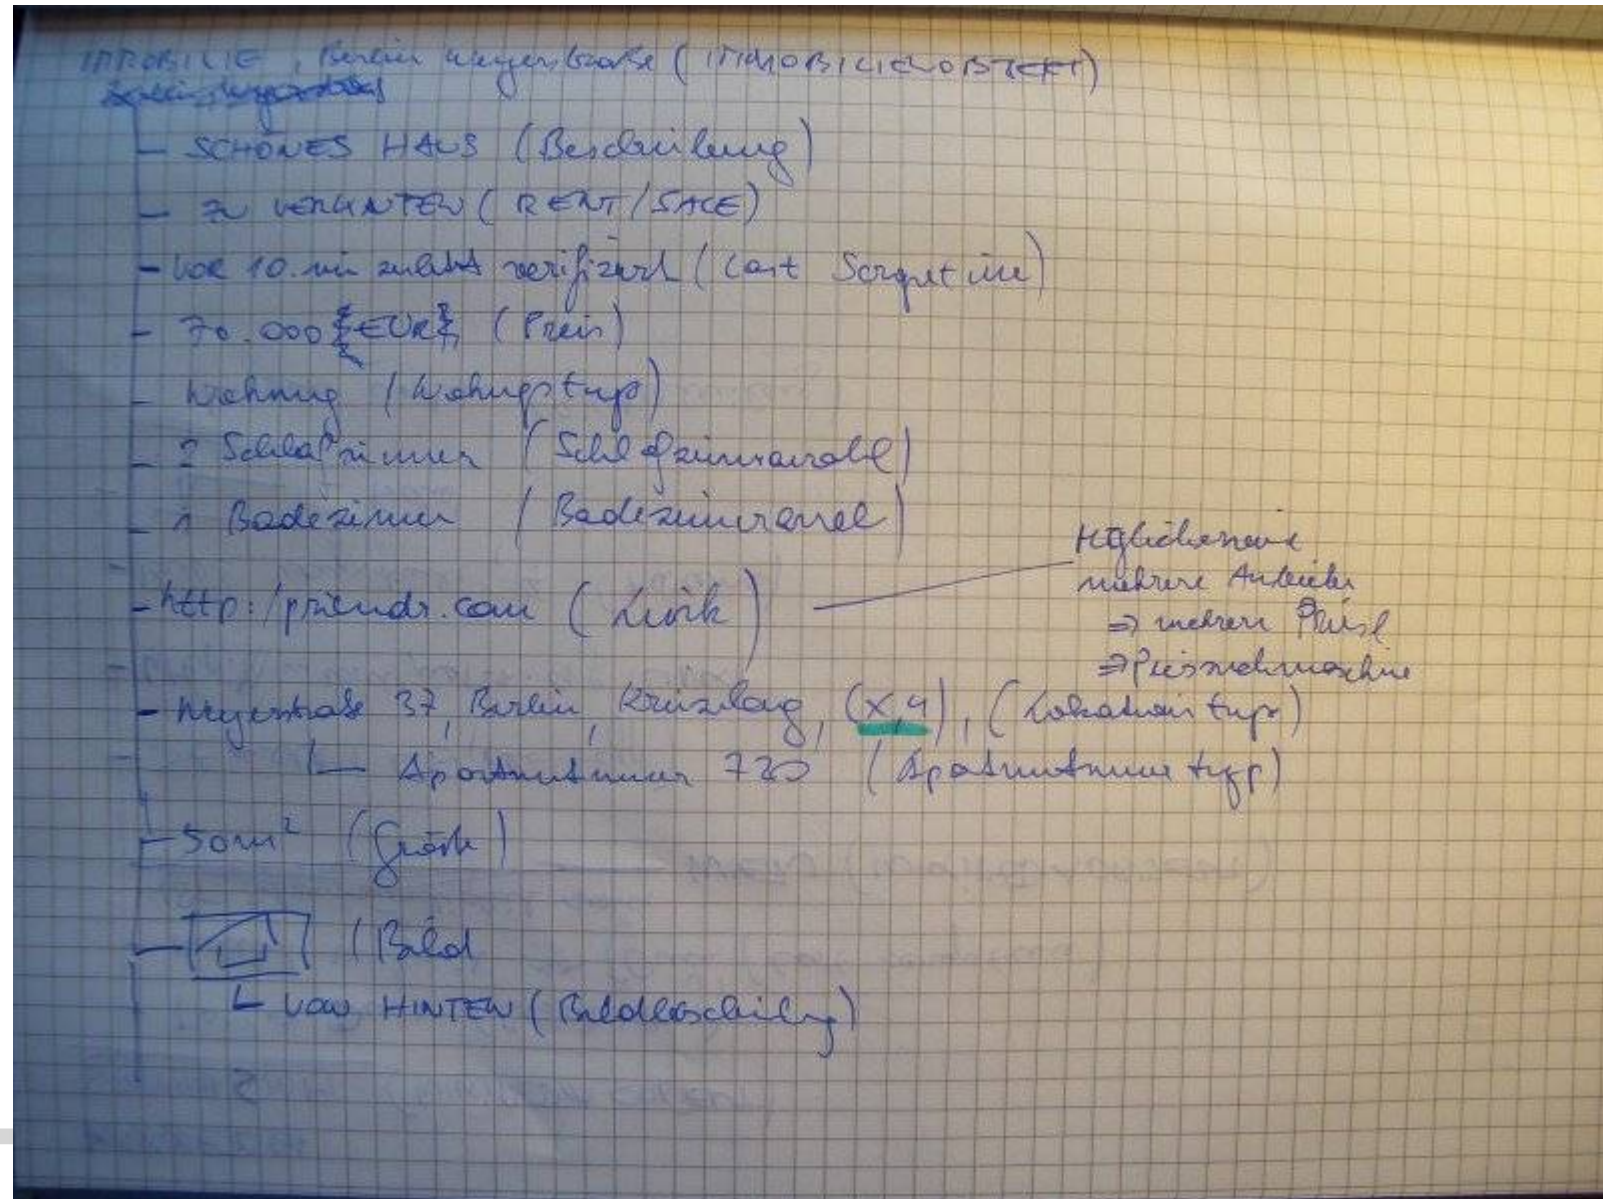 IMMOBILIE, Berlin Meyerstraße (IMMOBILIENOBJEKT)
- SCHÖNES HAUS (Beschreibung)
- ZU VERMIETEN (RENT/SALE)
- VOR 10. min zuletzt verifiziert (Last Scrapetime)
- 70.000 {EUR} (Preis)
- Wohnung (Wohnungstyp)
- 2 Schlafzimmer (Schlafzimmeranzahl)
- 1 Badezimmer (Badezimmeranzahl)
- http:/ .com (Link)
Möglicherweise
mehrere Anbieter
⇒ mehrere Preise
⇒
- Meyerstraße 37, Berlin, Kreuzberg, (x,y), (Lokationstyp)
Apartmentnummer 720 (Apartmentnummertyp)
- 50m² (Größe)
- (Bild
VON HINTEN (Bildbeschreibung)